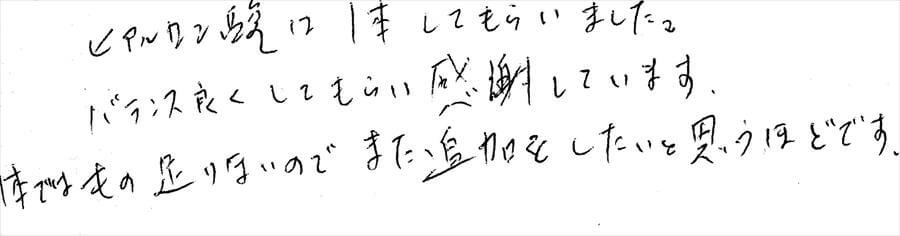 ヒアルロン酸は1本してもらいました。
バランス良くしてもらい感謝しています。
1本ではもの足りないのでまた追加をしたいと思うほどです。